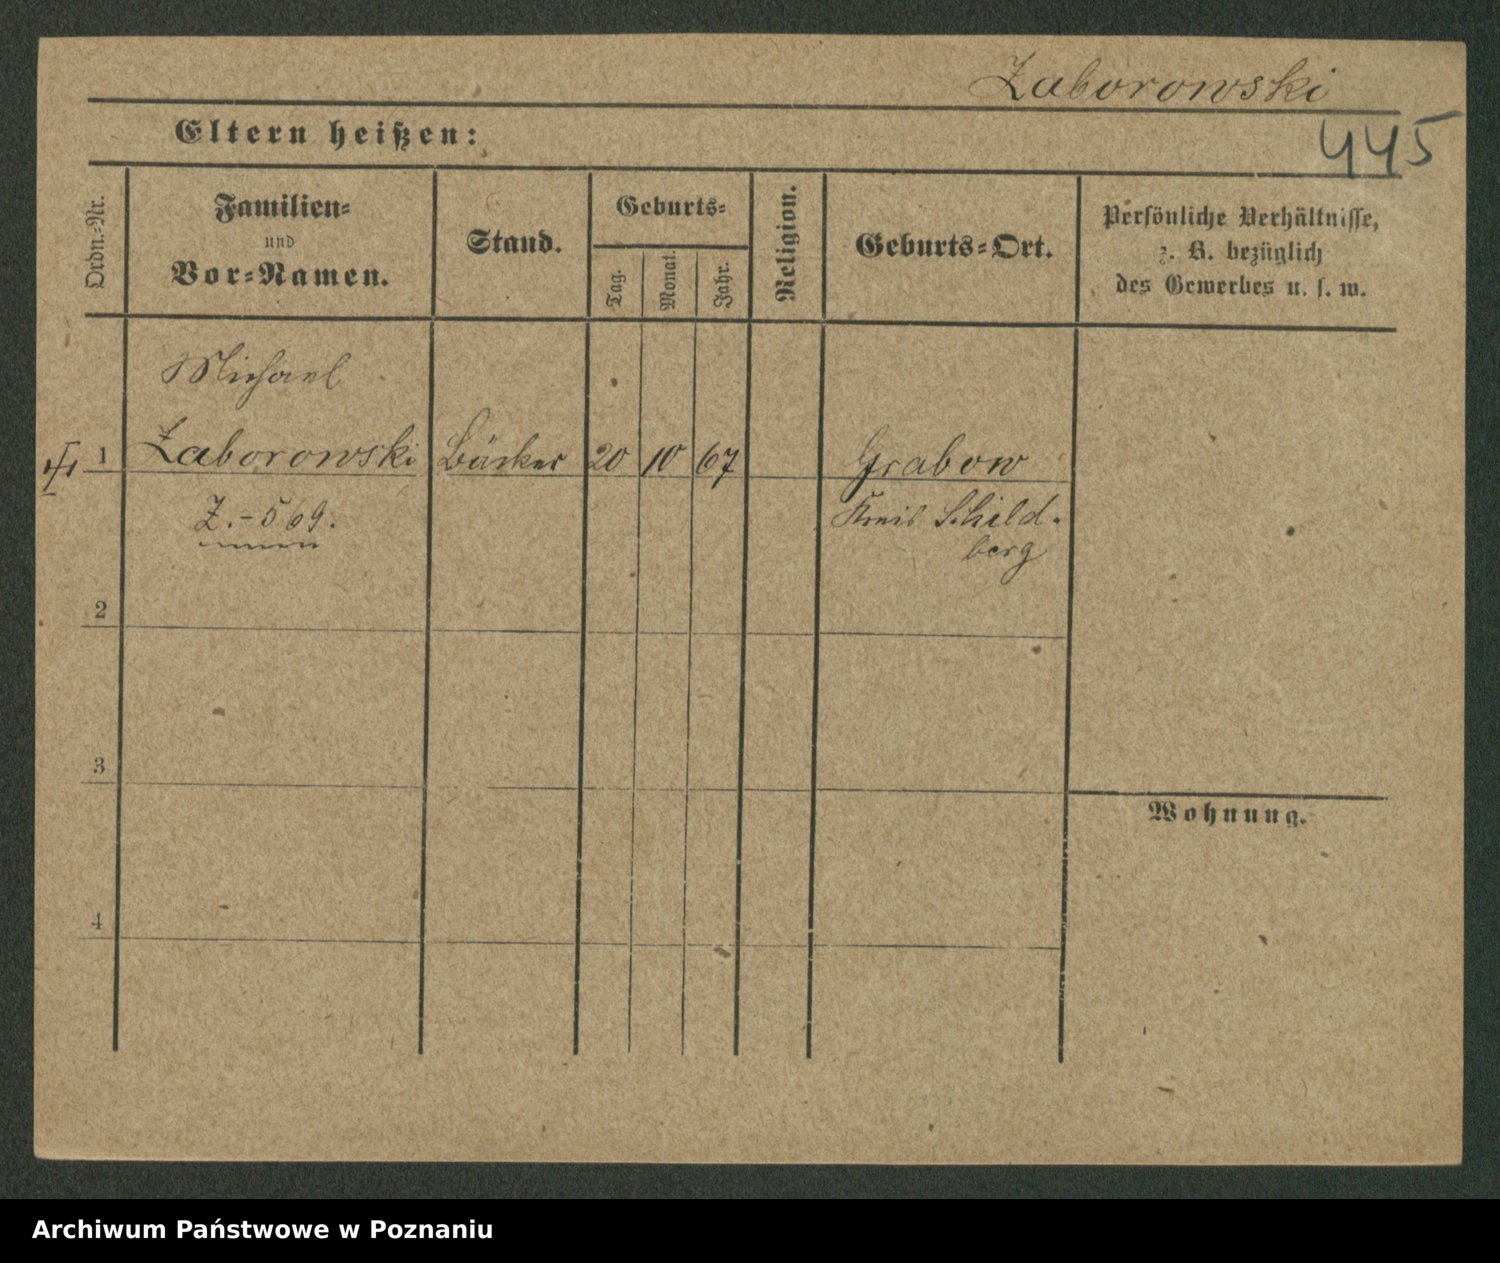 Zaborowski
445
Eltern heißen:
Ordn.-Nr.
Familien-
und
Vor-Namen.
Stand.
Geburts-
Tag.
Monat.
Jahr.
Religion.
Geburts-Ort.
Persönliche Verhältnisse,
z. B. bezüglich
des Gewerbes u. s. w.
Michael
1 Zaborowski Bäcker 20 10 67 Grabow
Z.-569. Kreis Schild-
berg
2
3
Wohnung.
4
Archiwum Państwowe w Poznaniu